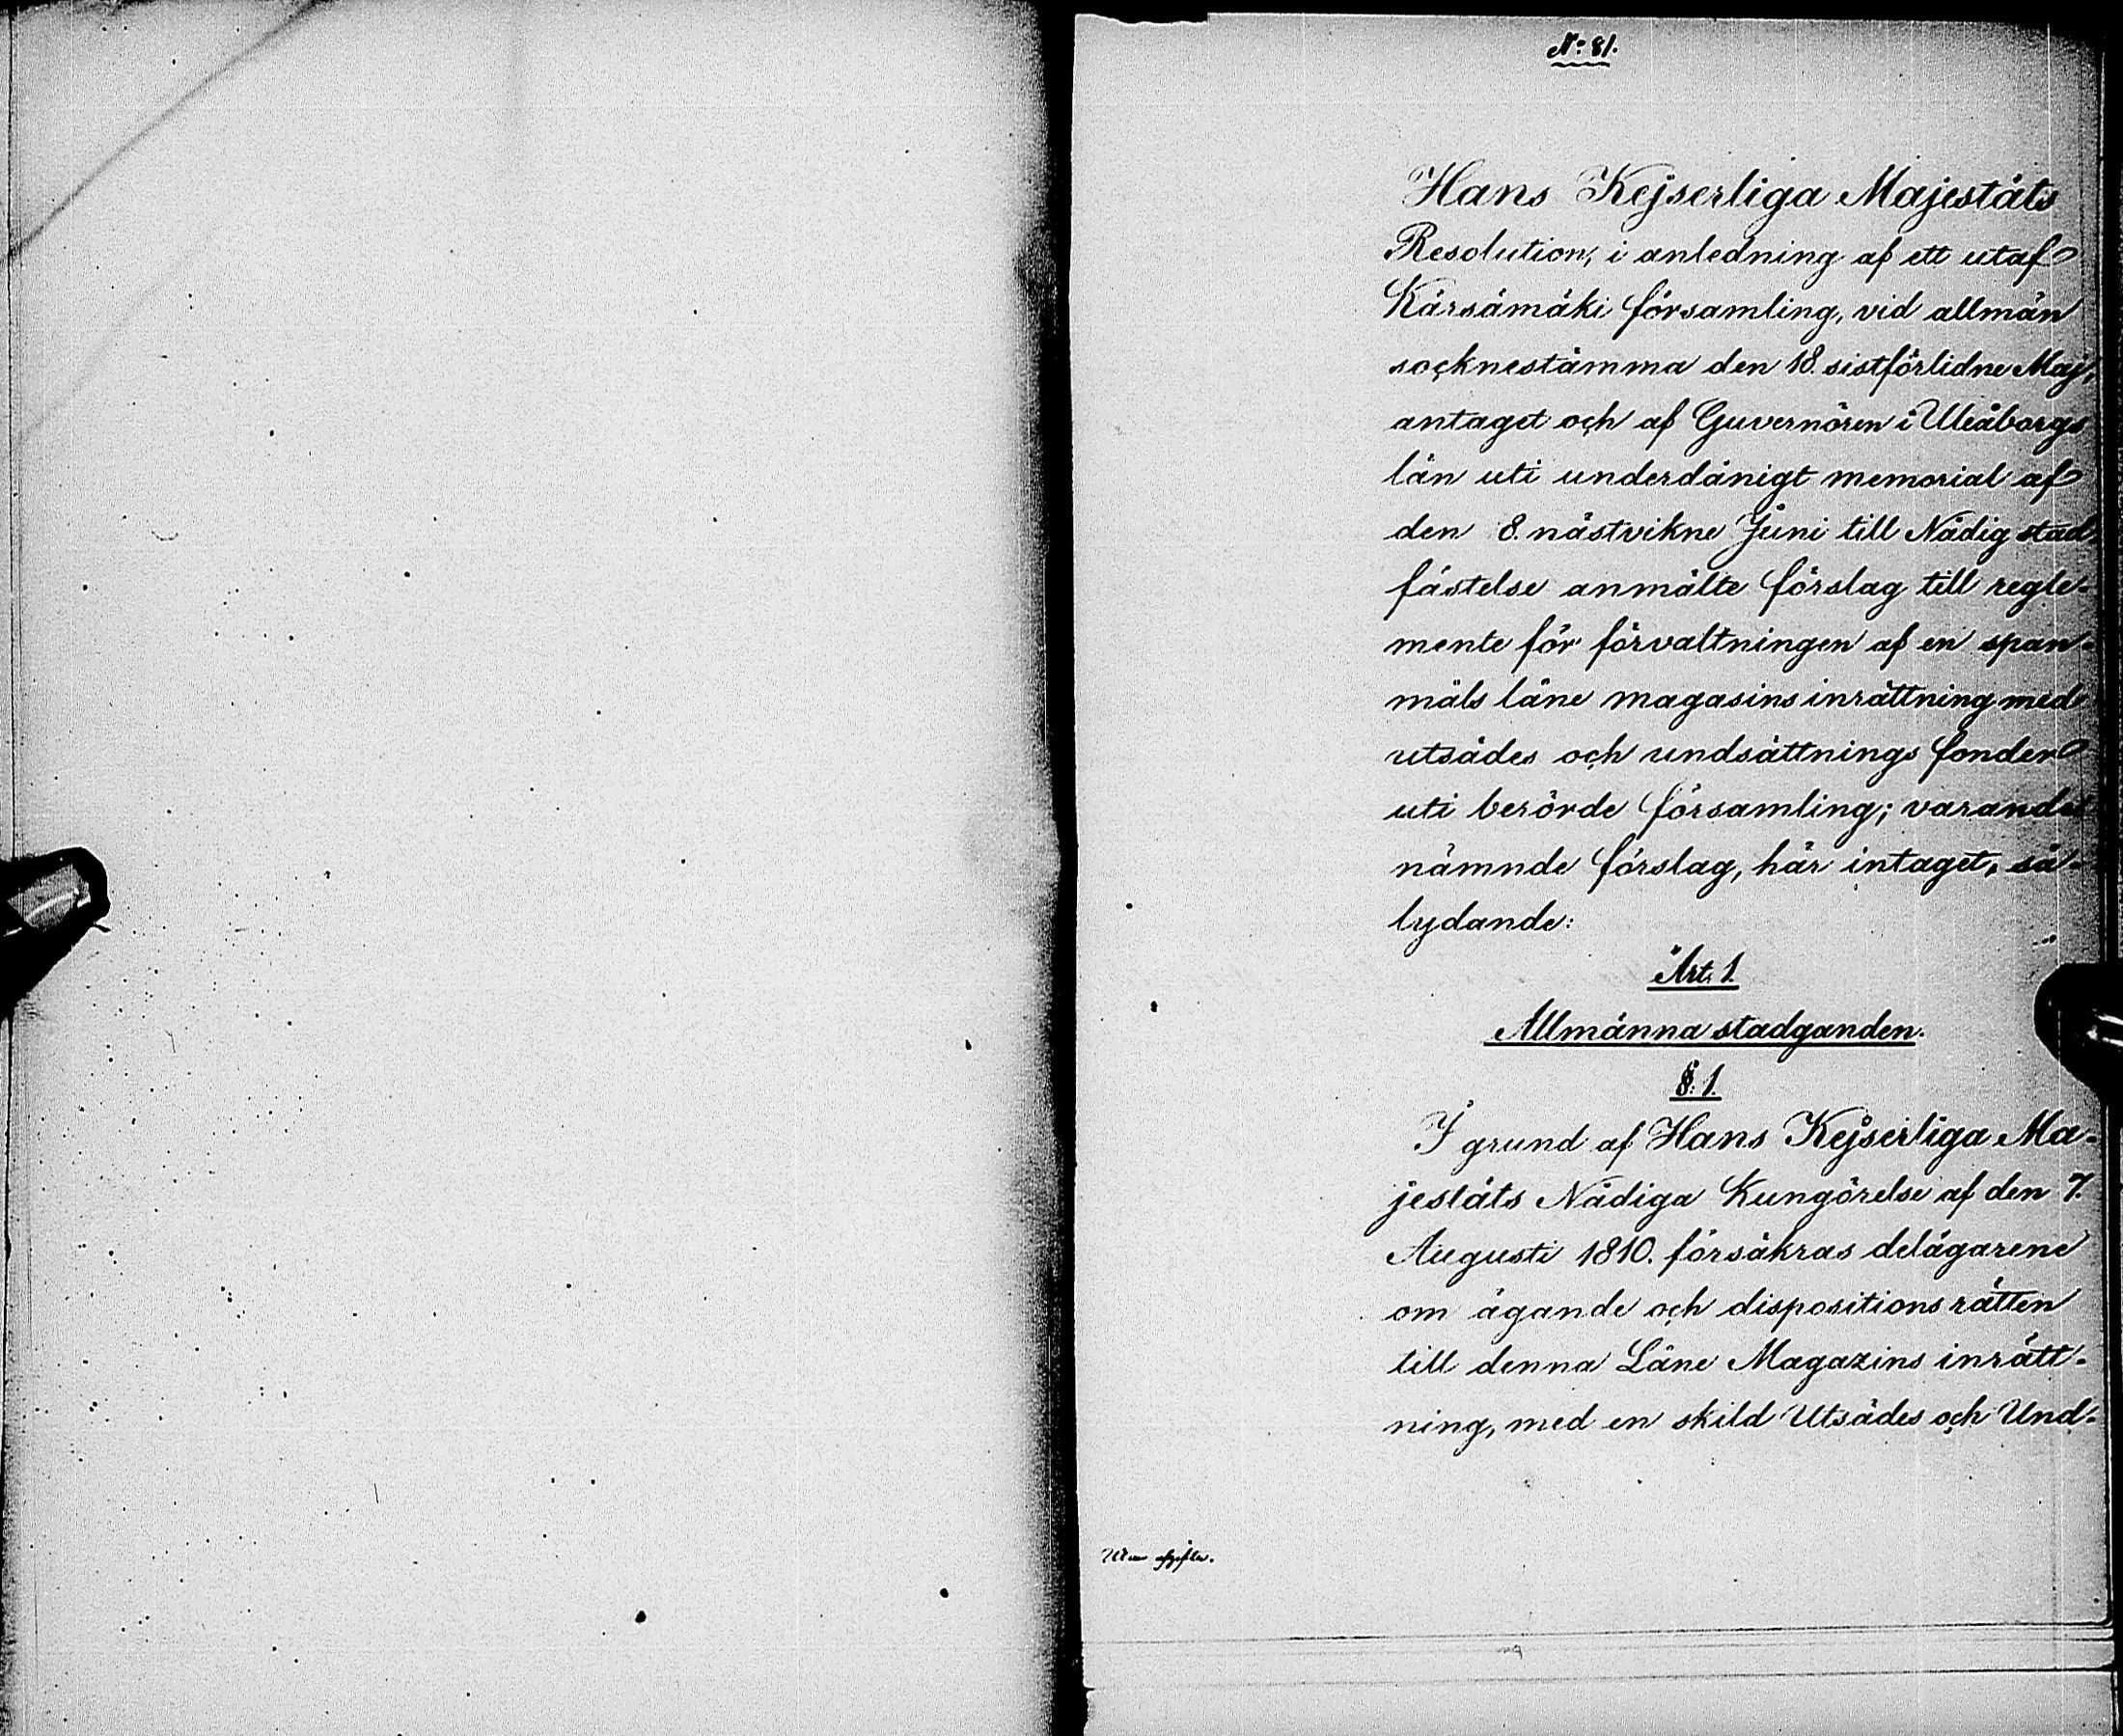 N:o 81.
Hans Kejserliga Majestäts
Resolution, i anledning af ett utaf
Kärsämäki församling, vid allmän
socknestämma den 18. sistförlidne Maj,
antaget och af Guvernören i Uleåborgs
län uti underdånigt memorial af
den 8. nästvikne Juni till Nådig stad-
fästelse anmälte förslag till regle-
mente för förvaltningen af en span-
måls låne magasins inrättning med
utsädes och undsättnings fonder
uti berörde församling; varande
nämnde förslag, här intaget, så-
lydande:
Art. 1.
Allmänna stadganden.
§. 1.
I grund af Hans Kejserliga Ma-
jestäts Nådiga Kungörelse af den 7.
Augusti 1810. försäkras delägarene
om ägande och dispositions rätten
till denna Låne Magazins inrätt-
ning, med en skild Utsädes och Und-
Utan afgifter.